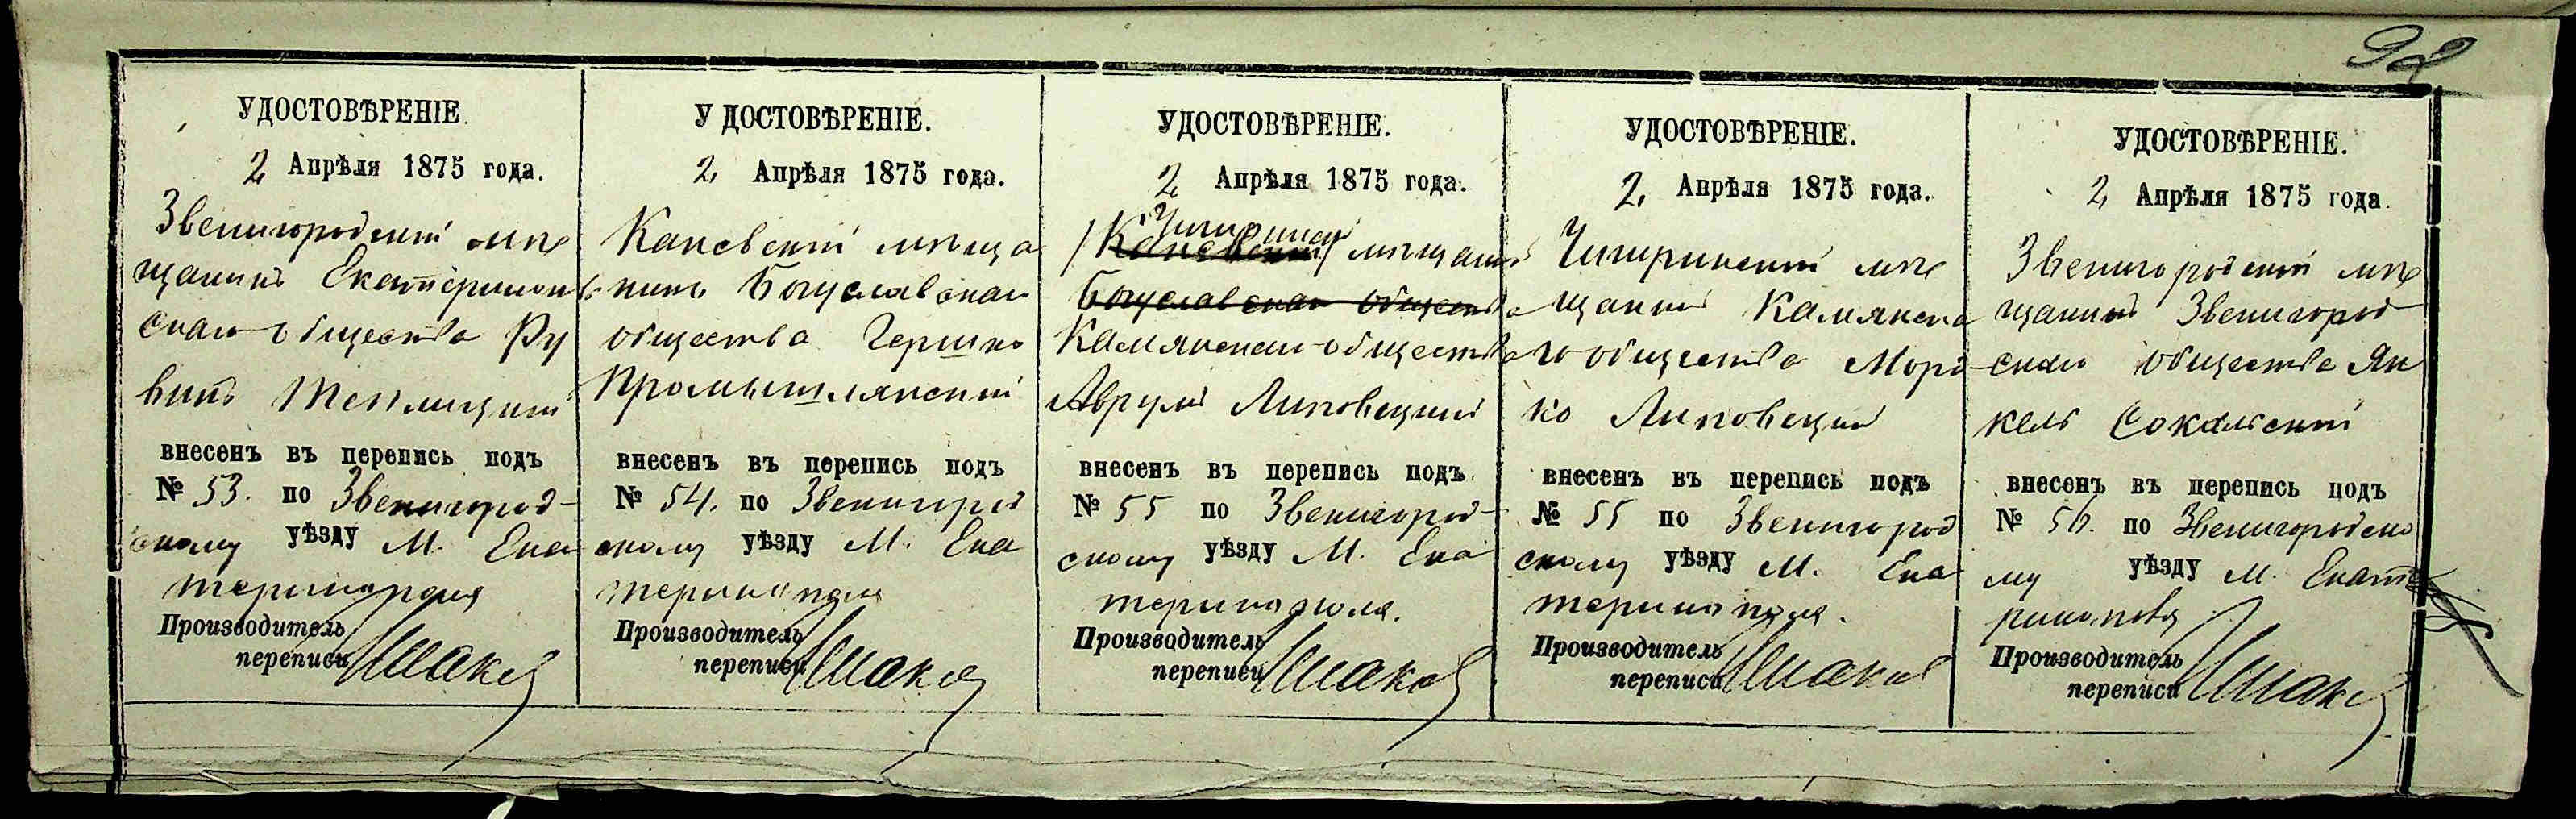 92
УДОСТОВѢРЕНІЕ.
2 Апрѣля 1875 года.
Звенигородскій мѣ
щанинъ Екатеринополь
скаго общества Ру
винъ Теплицкій
внесенъ въ перепись подъ
№ 53. по Звенигород-
скому уѣзду М. Ека
теринополя
Производитель
переписи
УДОСТОВѢРЕНІЕ.
2, Апрѣля 1875 года.
Каневскій мѣща
нинъ Богуславскаго
общества Гершко
Промышлянскій
внесенъ въ перепись подъ
№ 54. по Звенигород
скому уѣзду М. Ека
теринополя
Производитель
переписи
УДОСТОВѢРЕНІЕ.
2 Апрѣля 1875 года.
Чигиринскій
Каневскій мѣщанинъ
Богуславскаго общества
Камянскаго общества
Аврумъ Липовецкій
внесенъ въ перепись подъ
№ 55 по Звенигород-
скому уѣзду М. Ека
теринополя.
Производитель
переписи
УДОСТОВѢРЕНІЕ.
2, Апрѣля 1875 года.
Чигиринскій мѣ
щанинъ Камянска
го общества Мор
ко Липовецкій
внесенъ въ перепись подъ
№ 55 по Звенигород
скому уѣзду М. Ека
теринополя.
Производитель
переписи
УДОСТОВѢРЕНІЕ.
2, Апрѣля 1875 года.
Звенигородскій мѣ
щанинъ Звенигород
скаго общества Ян
кель Сокальскій
внесенъ въ перепись подъ
№ 56. по Звенигородско
му уѣзду М. Екате
ринополя
Производитель
переписи